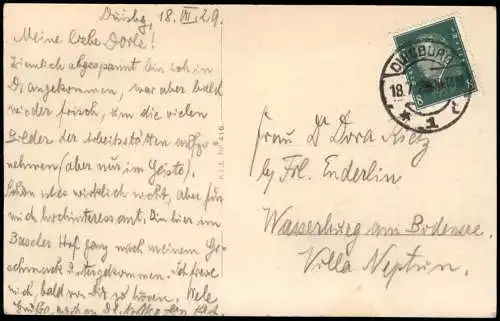 Duisbg, 18. VII. 29.
Meine liebe Dorle!
Ziemlich abgespannt bin ich in
D. angekommen, war aber bald
wieder frisch, um die vielen
Bilder der Arbeitsstätten aufzu-
nehmen (aber nur im Geiste).
Schön ist es wirklich nicht, aber für
mich hochinteressant. Bin hier im
Basler Hof ganz nach meinem Ge-
schmack untergekommen. Ich freue
mich, bald von Dir zu hören. Viele
Grüße, auch an
Frau Dr Dora Kietz
bei Frl. Enderlin
Wasserburg am Bodensee.
Villa Neptun.
DUISBURG
18.7.
* 1
8
416